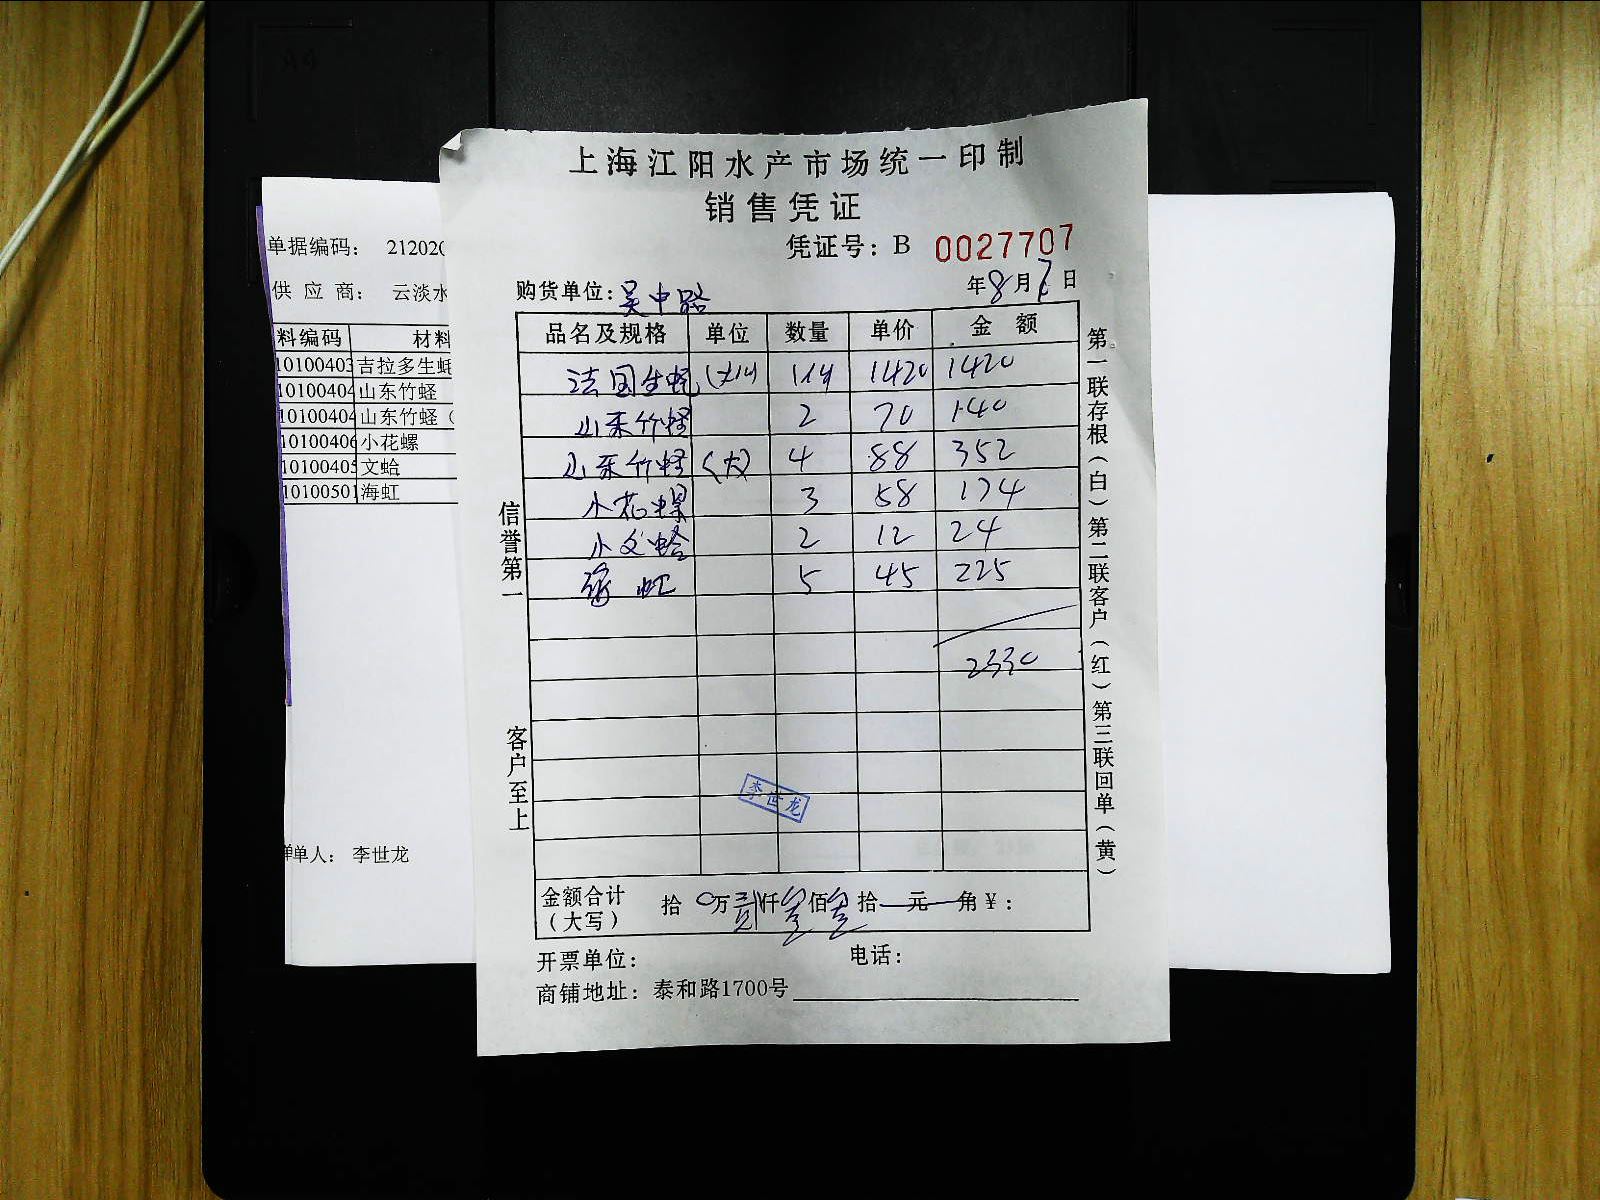 上海江阳水产市场统一印制
销售凭证
凭证号：B 0027707
购货单位：吴中路 年8月7日
品名及规格 单位 数量 单价 金额
法国生蚝 1420 1420
山东竹蛏 2 70 140
山东竹蛏 (大) 4 88 352
小花螺 3 58 174
小文蛤 2 12 24
虹 5 45 225
2330
李世龙
金额合计（大写） 拾 0万贰仟 佰 拾 元 角¥：
开票单位： 电话：
商铺地址：泰和路1700号
信誉第一
客户至上
第一联存根（白）第二联客户（红）第三联回单（黄）
单据编码： 21202
供应商： 云淡水
料编码 材料
10100403 吉拉多生蚝
1010040 山东竹蛏
1010040 山东竹蛏（
10100406 小花螺
10100405 文蛤
10100501 海虹
单人： 李世龙